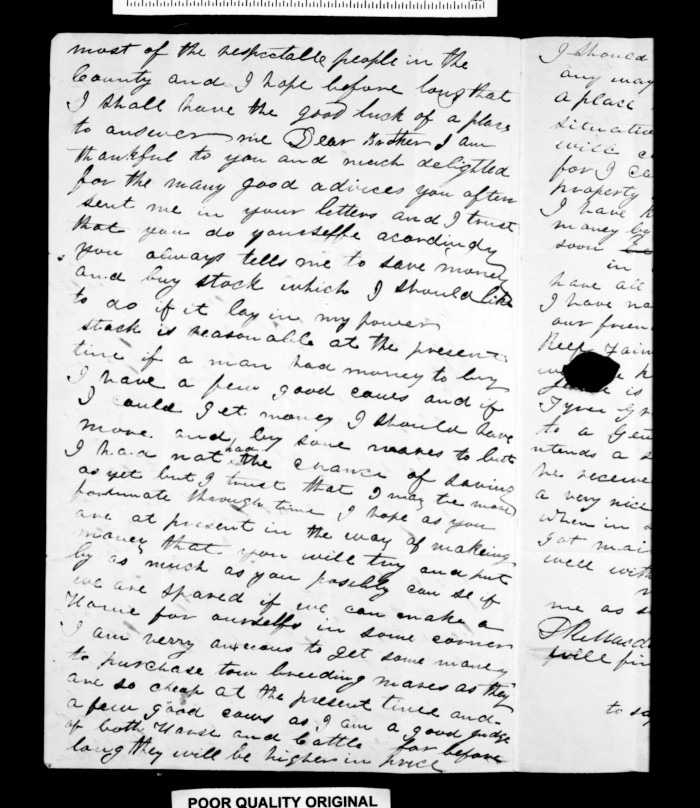 most of the respectable people in the
County and I hope before long that
I shall have the good luck of a place
to answer me Dear Brother I am
thankful to you and much delighted
for the many good advices you often
sent me in your letters and I trust
that you do yourselffe acordindy
you always tells me to save money
and buy stock which I should like
to do if it lay in my power
stock is reasonable at the present
time if a man had money to buy
I have a few good cows and if
I could get money I should have
more and buy some mares to but
I had not had the chance of saving
as yet but I trust that I may be more
fortunate through time I hope as you
are at present in the way of making
money that you will try and put
by as much as you posibly can se if
we are spared if we can make a
Home for ourselfs in some corner
I am verry anxious to get some money
to purchase tow breeding mares as they
are so cheap at the present time and
a few good cows as I am a good judge
of both Horse and Cattle for before
long they will be highers in price
I should
any way
a place
situatio
will c
for I ca
property
I have
money by
soon
in
have all
I have no
our frien
Keep
is
to a
he receive
a very nice
when in
got mar
well with
me as s
will fin
to say
POOR QUALITY ORIGINAL